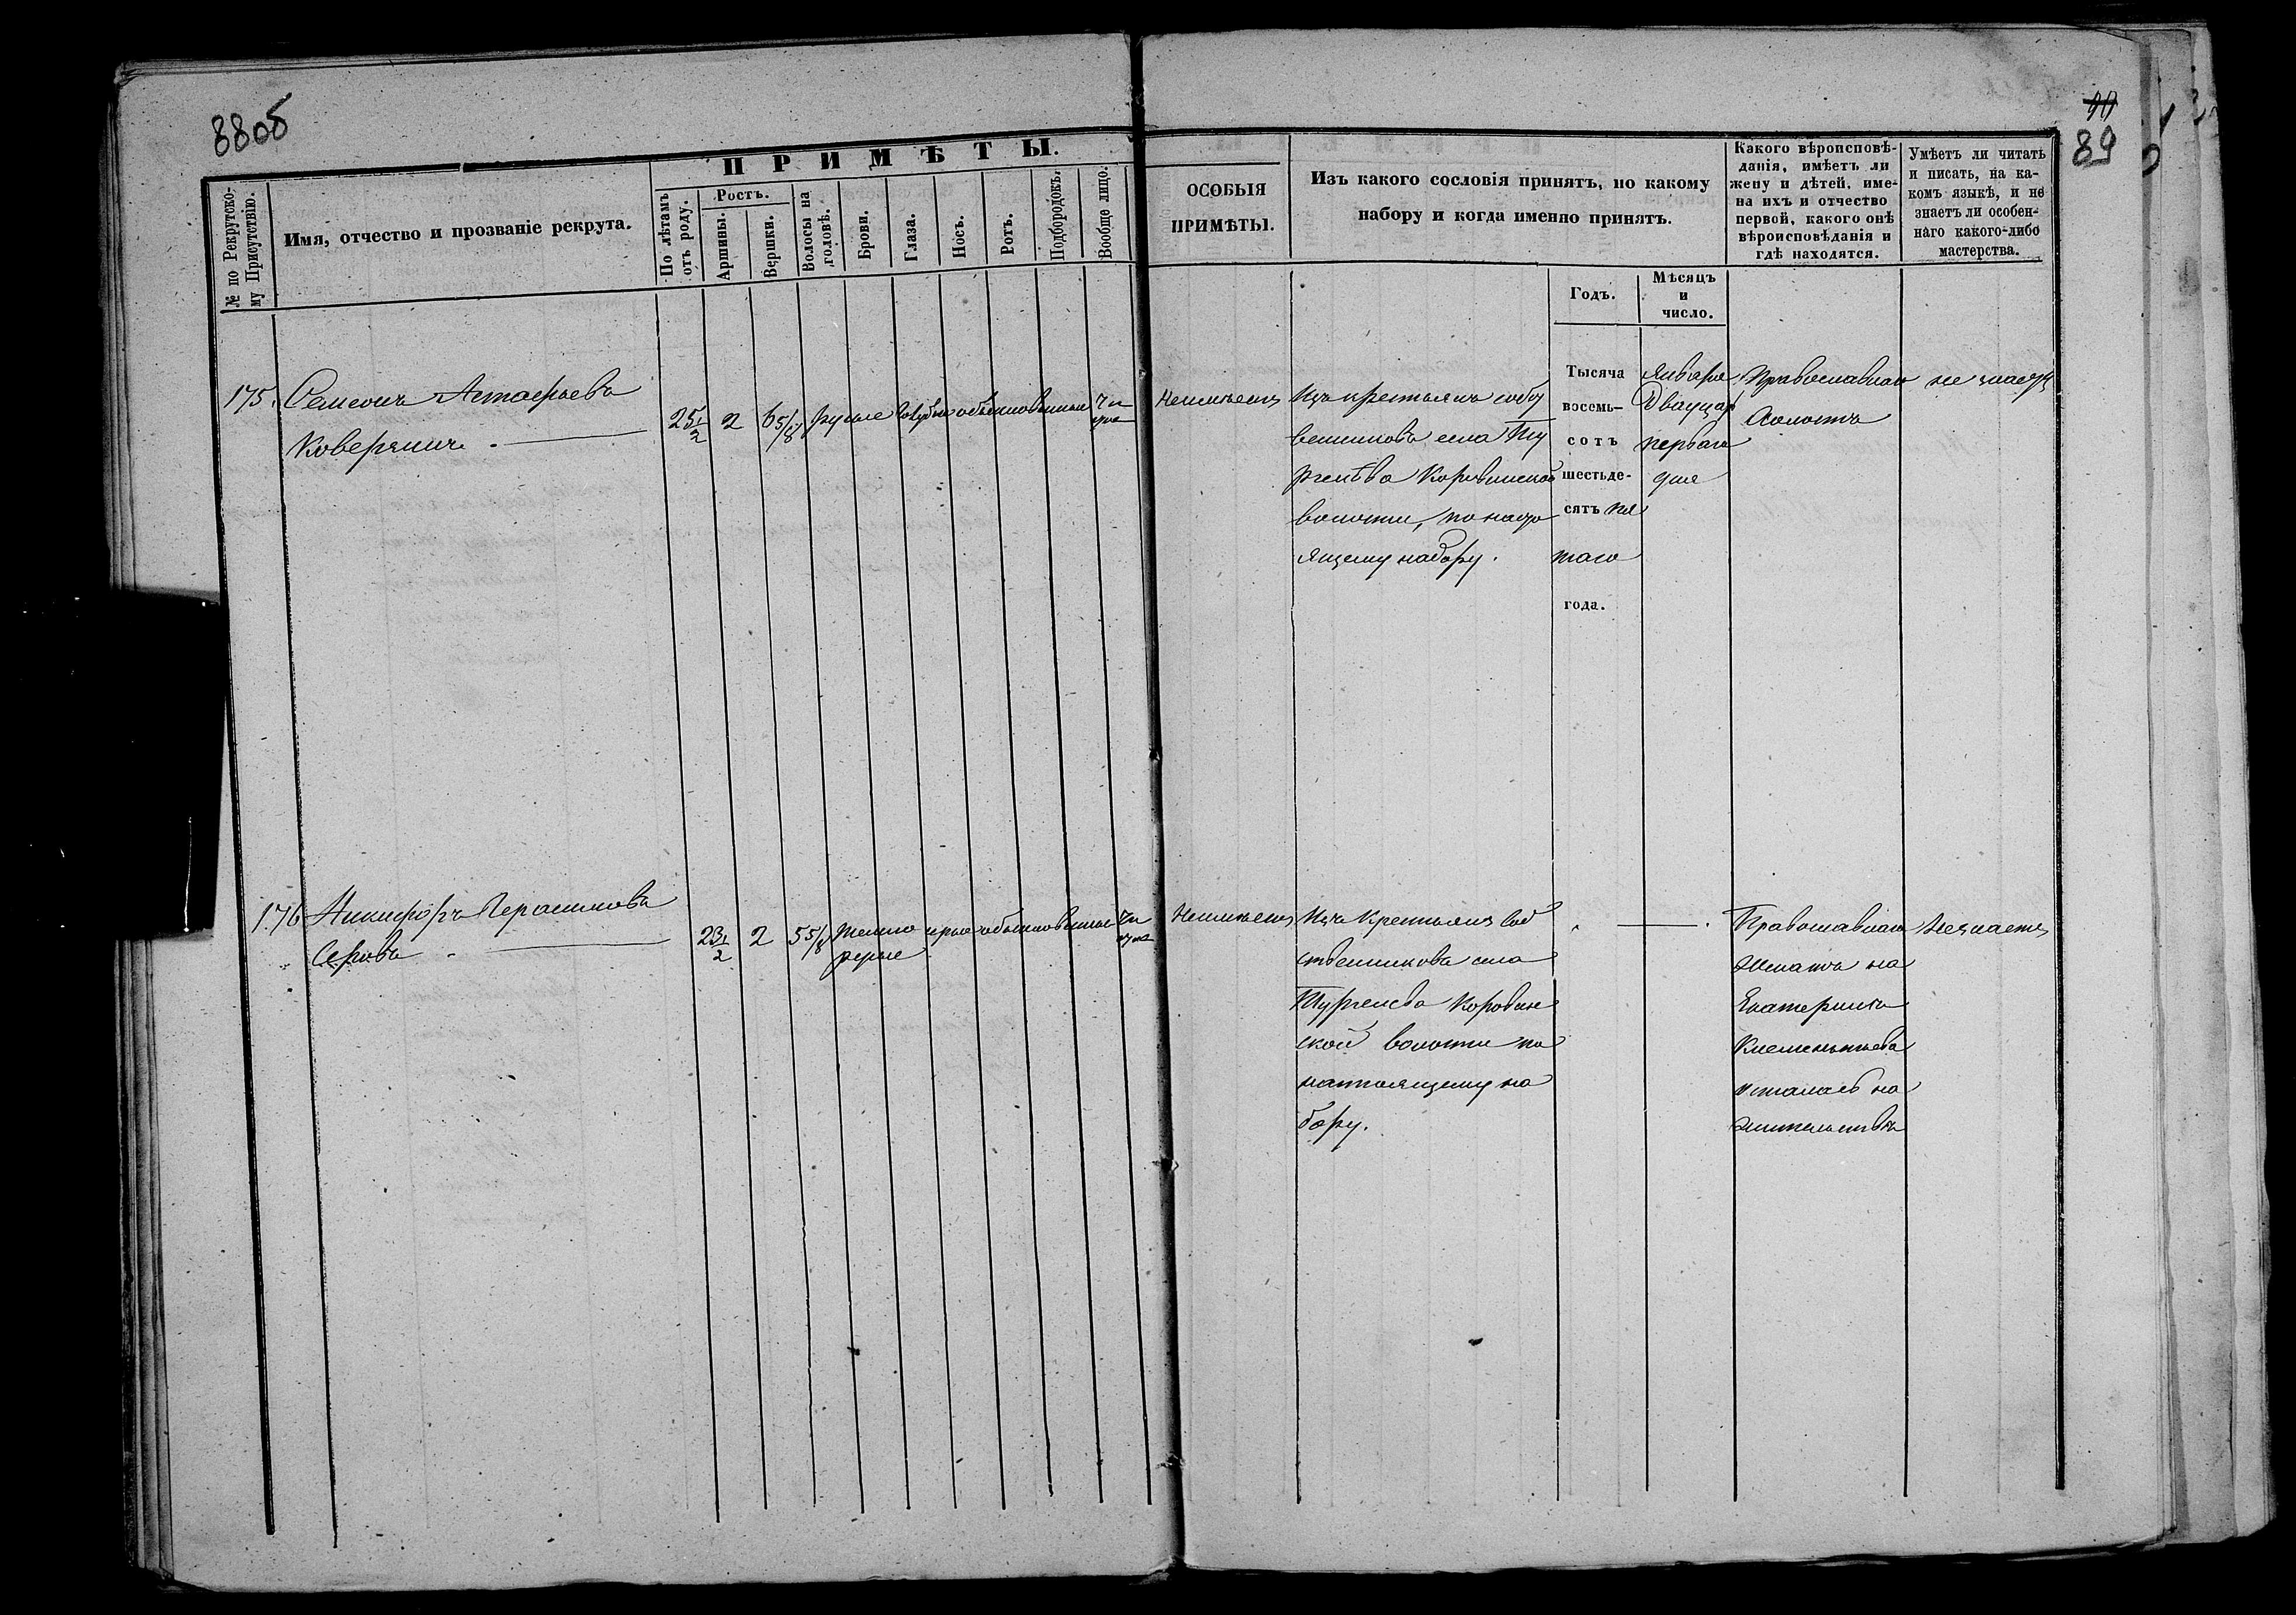 88об
89
ПРИМѢТЫ.
№ по Рекрутско-
му Присутствію.
Имя, отчество и прозваніе рекрута.
По лѣтамъ
отъ роду.
Ростъ.
Аршины.
Вершки.
Волосы на
головѣ.
Брови.
Глаза.
Носъ.
Ротъ.
Подбородокъ.
Вообще лицо.
ОСОБЫЯ
ПРИМѢТЫ.
Изъ какого сословія принятъ, по какому
набору и когда именно принятъ.
Годъ.
Мѣсяцъ
и
число.
Какого вѣроисповѣ-
данія, имѣетъ ли
жену и дѣтей, име-
на ихъ и отчество
первой, какого онѣ
вѣроисповѣданія и
гдѣ находятся.
Умѣетъ ли читать
и писать, на ка-
комъ языкѣ, и не
знаетъ ли особен-
наго какого-либо
мастерства.
175. Семенъ Астафьевъ
Коверянинъ.
25 1/2
2
6 5/8
русые
голубые
обыкновенные
чи
стое
Неимѣетъ
Изъ крестьянъ собст
венниковъ села Ту
ргенѣва Коровинской
волости, по насто
ящему набору.
Тысяча
восемь-
сотъ
шестьде-
сятъ пя
таго
года.
Января
Двадцать
перваго
дня
Православнаго
Холостъ
не знаетъ
176 Никифоръ Герасимовъ
Серовъ
23 1/2
2
5 5/8
темно
русые
серые
обыкновенные
чи
стое
Неимѣетъ
Изъ Крестьянъ Соб
ственниковъ села
Тургенева Коровин
ской волости по
настоящему на
бору.
Православнаго
Женатъ на
Екатеринѣ
Клементьева
осталась на
жительствѣ
Незнаетъ